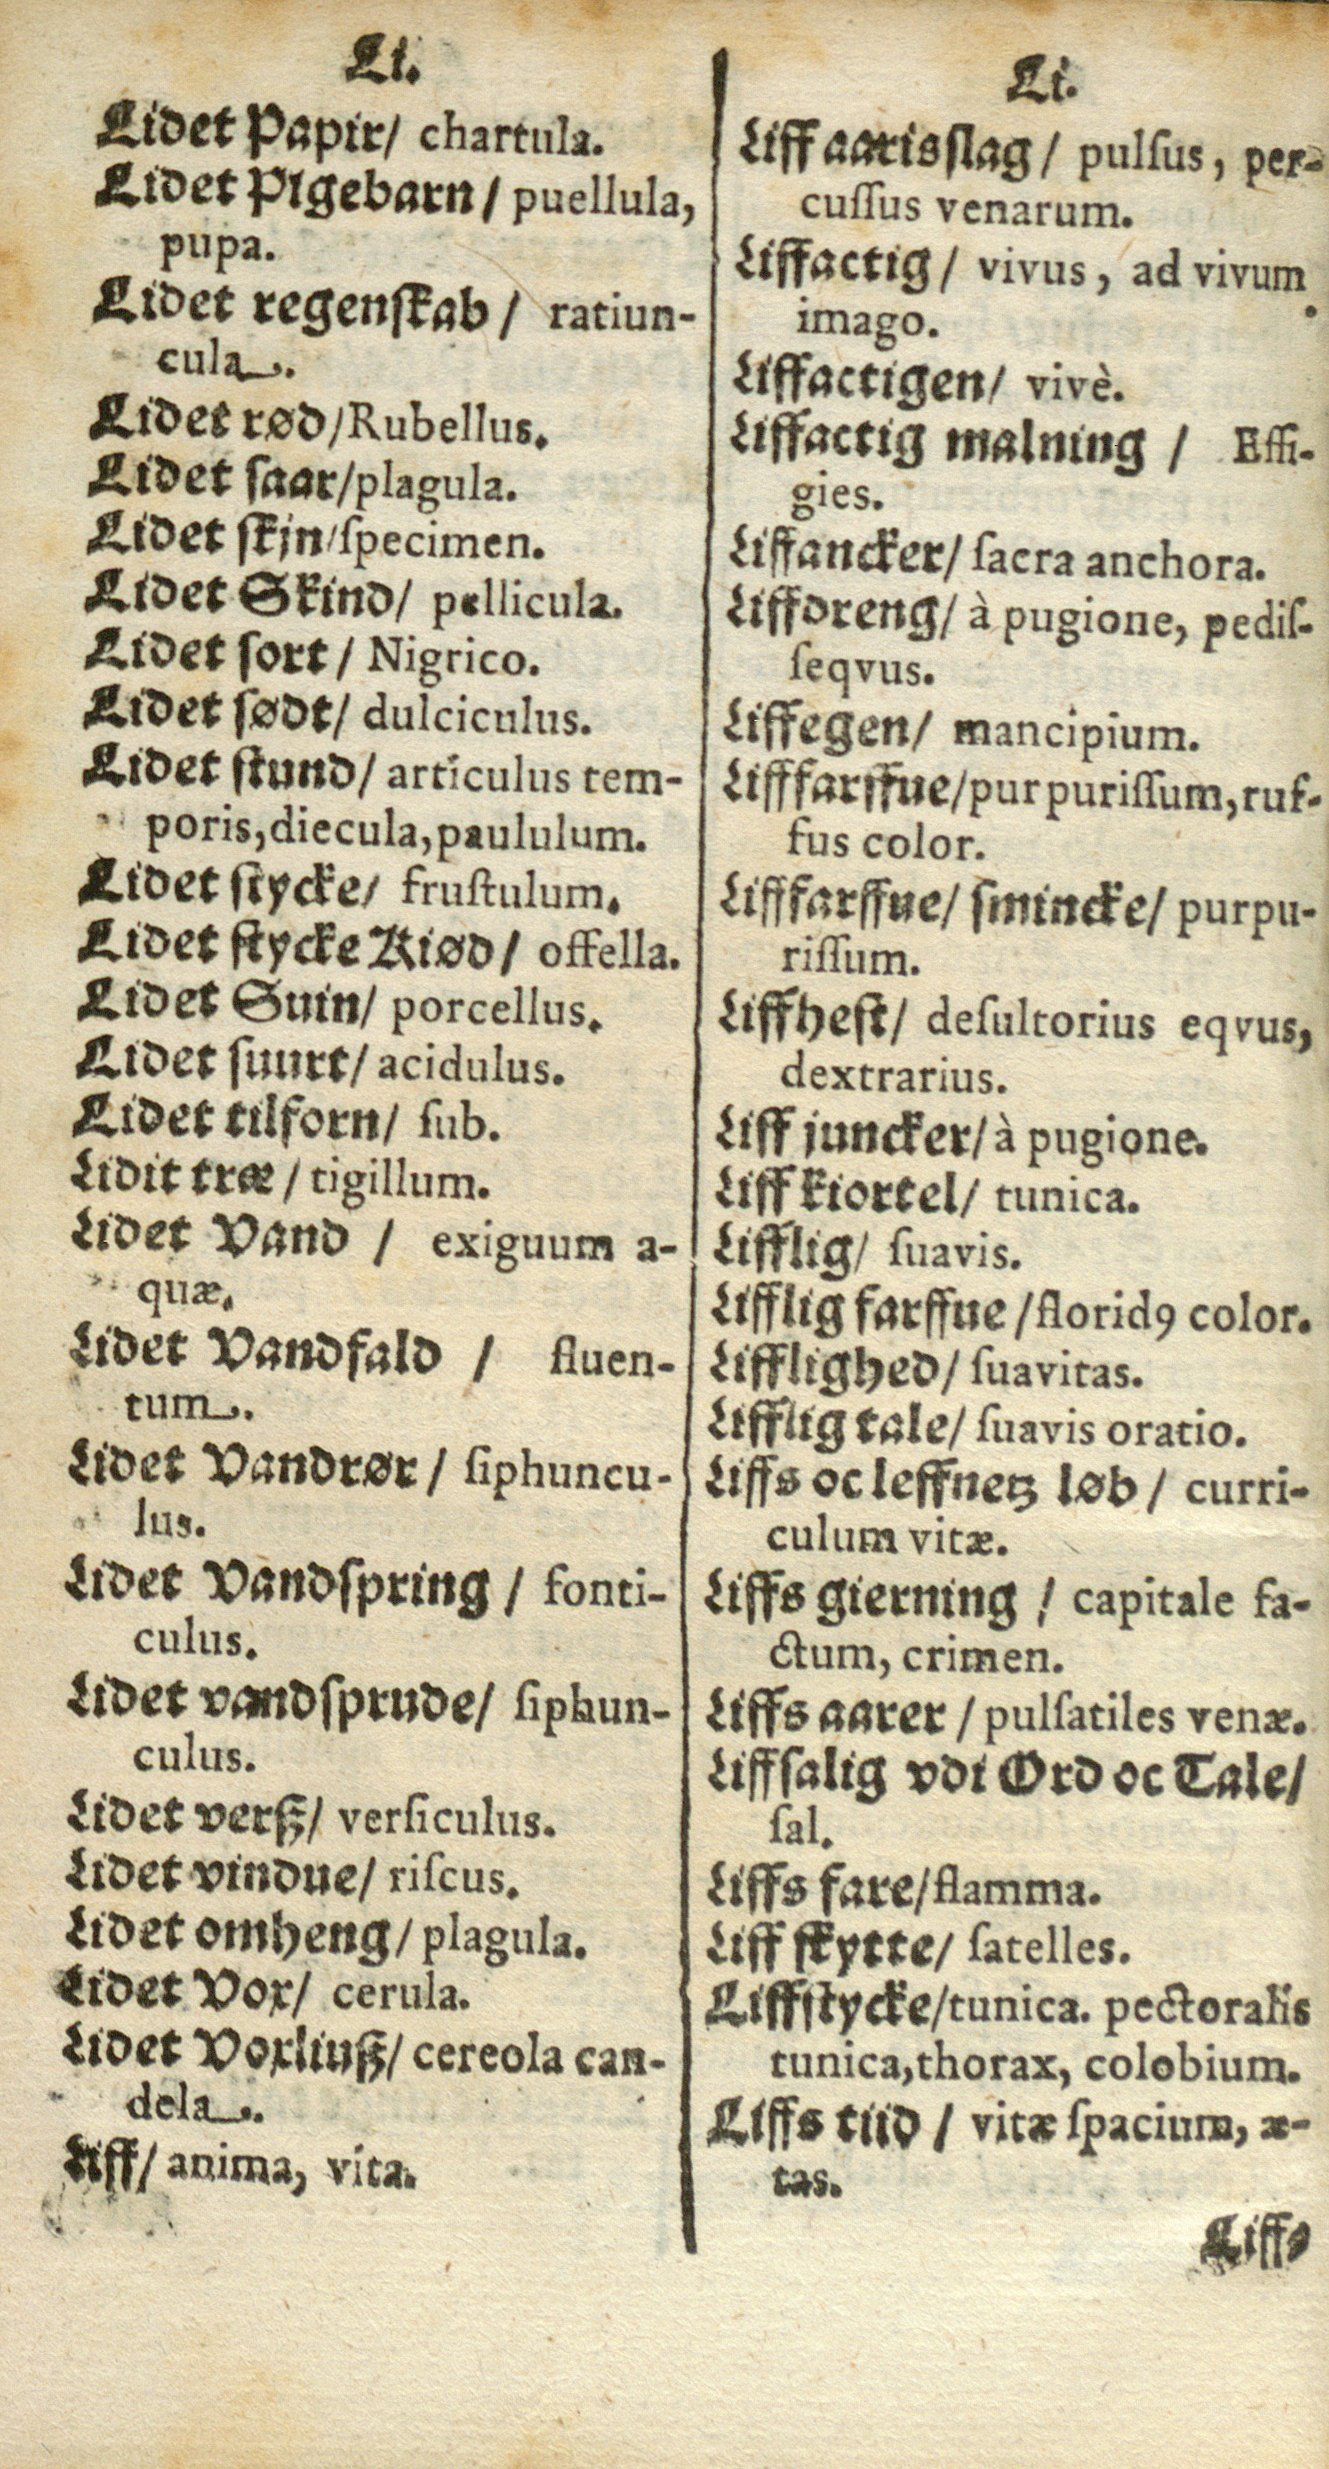 Li.
Lidet Papir/ chartula.
Lidet Pigebarn / puellula,
pupa.
Lidet regenſkab / ratiun-
cula.
Lidet rød/Rubellus.
Lidet ſaar/plagula.
Lidet ſkin/ſpecimen.
Lidet Skind/ pellicula.
Lidet ſort / Nigrico.
Lidet ſødt/ dulciculus.
Lidet ſtund/ articulus tem-
poris,diecula,paululum.
Lidet ſtycke/ fruſtulum.
Lidet ſtycke Kiød/ offella.
Lidet Suin/ porcellus.
Lidet ſuurt/ acidulus.
Lidet tilforn/ ſub.
Lidit træ / tigillum.
Lidet Vand / exiguum a-
quæ.
Lidet Vandfald / fluen-
tum.
Lidet Vandrør / ſiphuncu-
lus.
Lidet Vandſpring / fonti-
culus.
Lidet vandſprude/ ſiphun-
culus.
Lidet verß/ verſiculus.
Lidet vindue/ riſcus.
Lidet omheng/ plagula.
Lidet Vox/ cerula.
Lidet Voxliuß/ cereola can-
dela.
Liff/ anima, vita.
Li.
Liff aarisſlag / pulſus, per-
cuſſus venarum.
Liffactig/ vivus, ad vivum
imago.
Liffactigen/ vivè.
Liffactig malning / Effi-
gies.
Liffancker/ ſacra anchora.
Liffdreng/ à pugione, pediſ-
ſeqvus.
Liffegen/ mancipium.
Lifffarffue/purpuriſſum,ruf-
fus color.
Lifffarffue/ ſmincke/ purpu-
riſſum.
Liffheſt/ deſultorius eqvus,
dextrarius.
Liff juncker/ à pugione.
Liff kiortel/ tunica.
Lifflig/ ſuavis.
Lifflig farffue /floridꝯ color.
Lifflighed/ ſuavitas.
Lifflig tale/ ſuavis oratio.
Liffs oc leffnetz løb / curri-
culum vitæ.
Liffs gierning / capitale fa-
ctum, crimen.
Liffs aarer / pulſatiles venæ.
Liffſalig vdi Ord oc Tale/
ſal.
Liffs fare/flamma.
Liff ſkytte/ ſatelles.
Liffſtycke/tunica. pectoralis
tunica,thorax, colobium.
Liffs tiid / vitæ ſpacium, æ-
tas.
Liffs